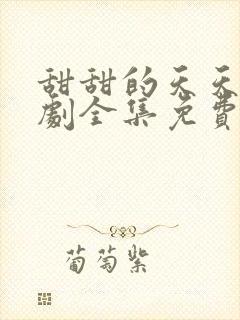 甜甜的天天
劇全集免費
葡萄紫